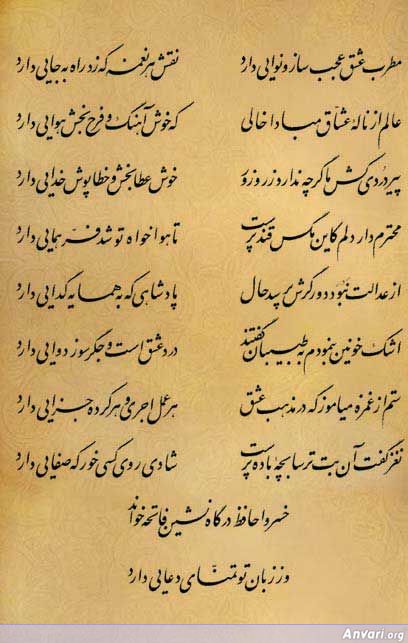 مطرب عشق عجب ساز و نوایی دارد نقش هر نغمه که زد راه به جایی دارد
عالم از نالهٔ عشاق مبادا خالی که خوش آهنگ و فرح بخش هوایی دارد
پیر دردی کش ما گرچه ندارد زر و زور خوش عطابخش و خطاپوش خدایی دارد
محترم دار دلم کاین مگس قندپرست تا هواخواه تو شد فر همایی دارد
از عدالت نبود دور گرش پرسد حال پادشاهی که به همسایه گدایی دارد
اشک خونین بنمودم به طبیبان گفتند درد عشق است و جگرسوز دوایی دارد
ستم از غمزه میاموز که در مذهب عشق هر عمل اجری و هر کرده جزایی دارد
نغز گفت آن بت ترسابچهٔ باده پرست شادی روی کسی خور که صفایی دارد
خسروا حافظ درگاه نشین فاتحه خواند
وز زبان تو تمنای دعایی دارد
Anvari.org